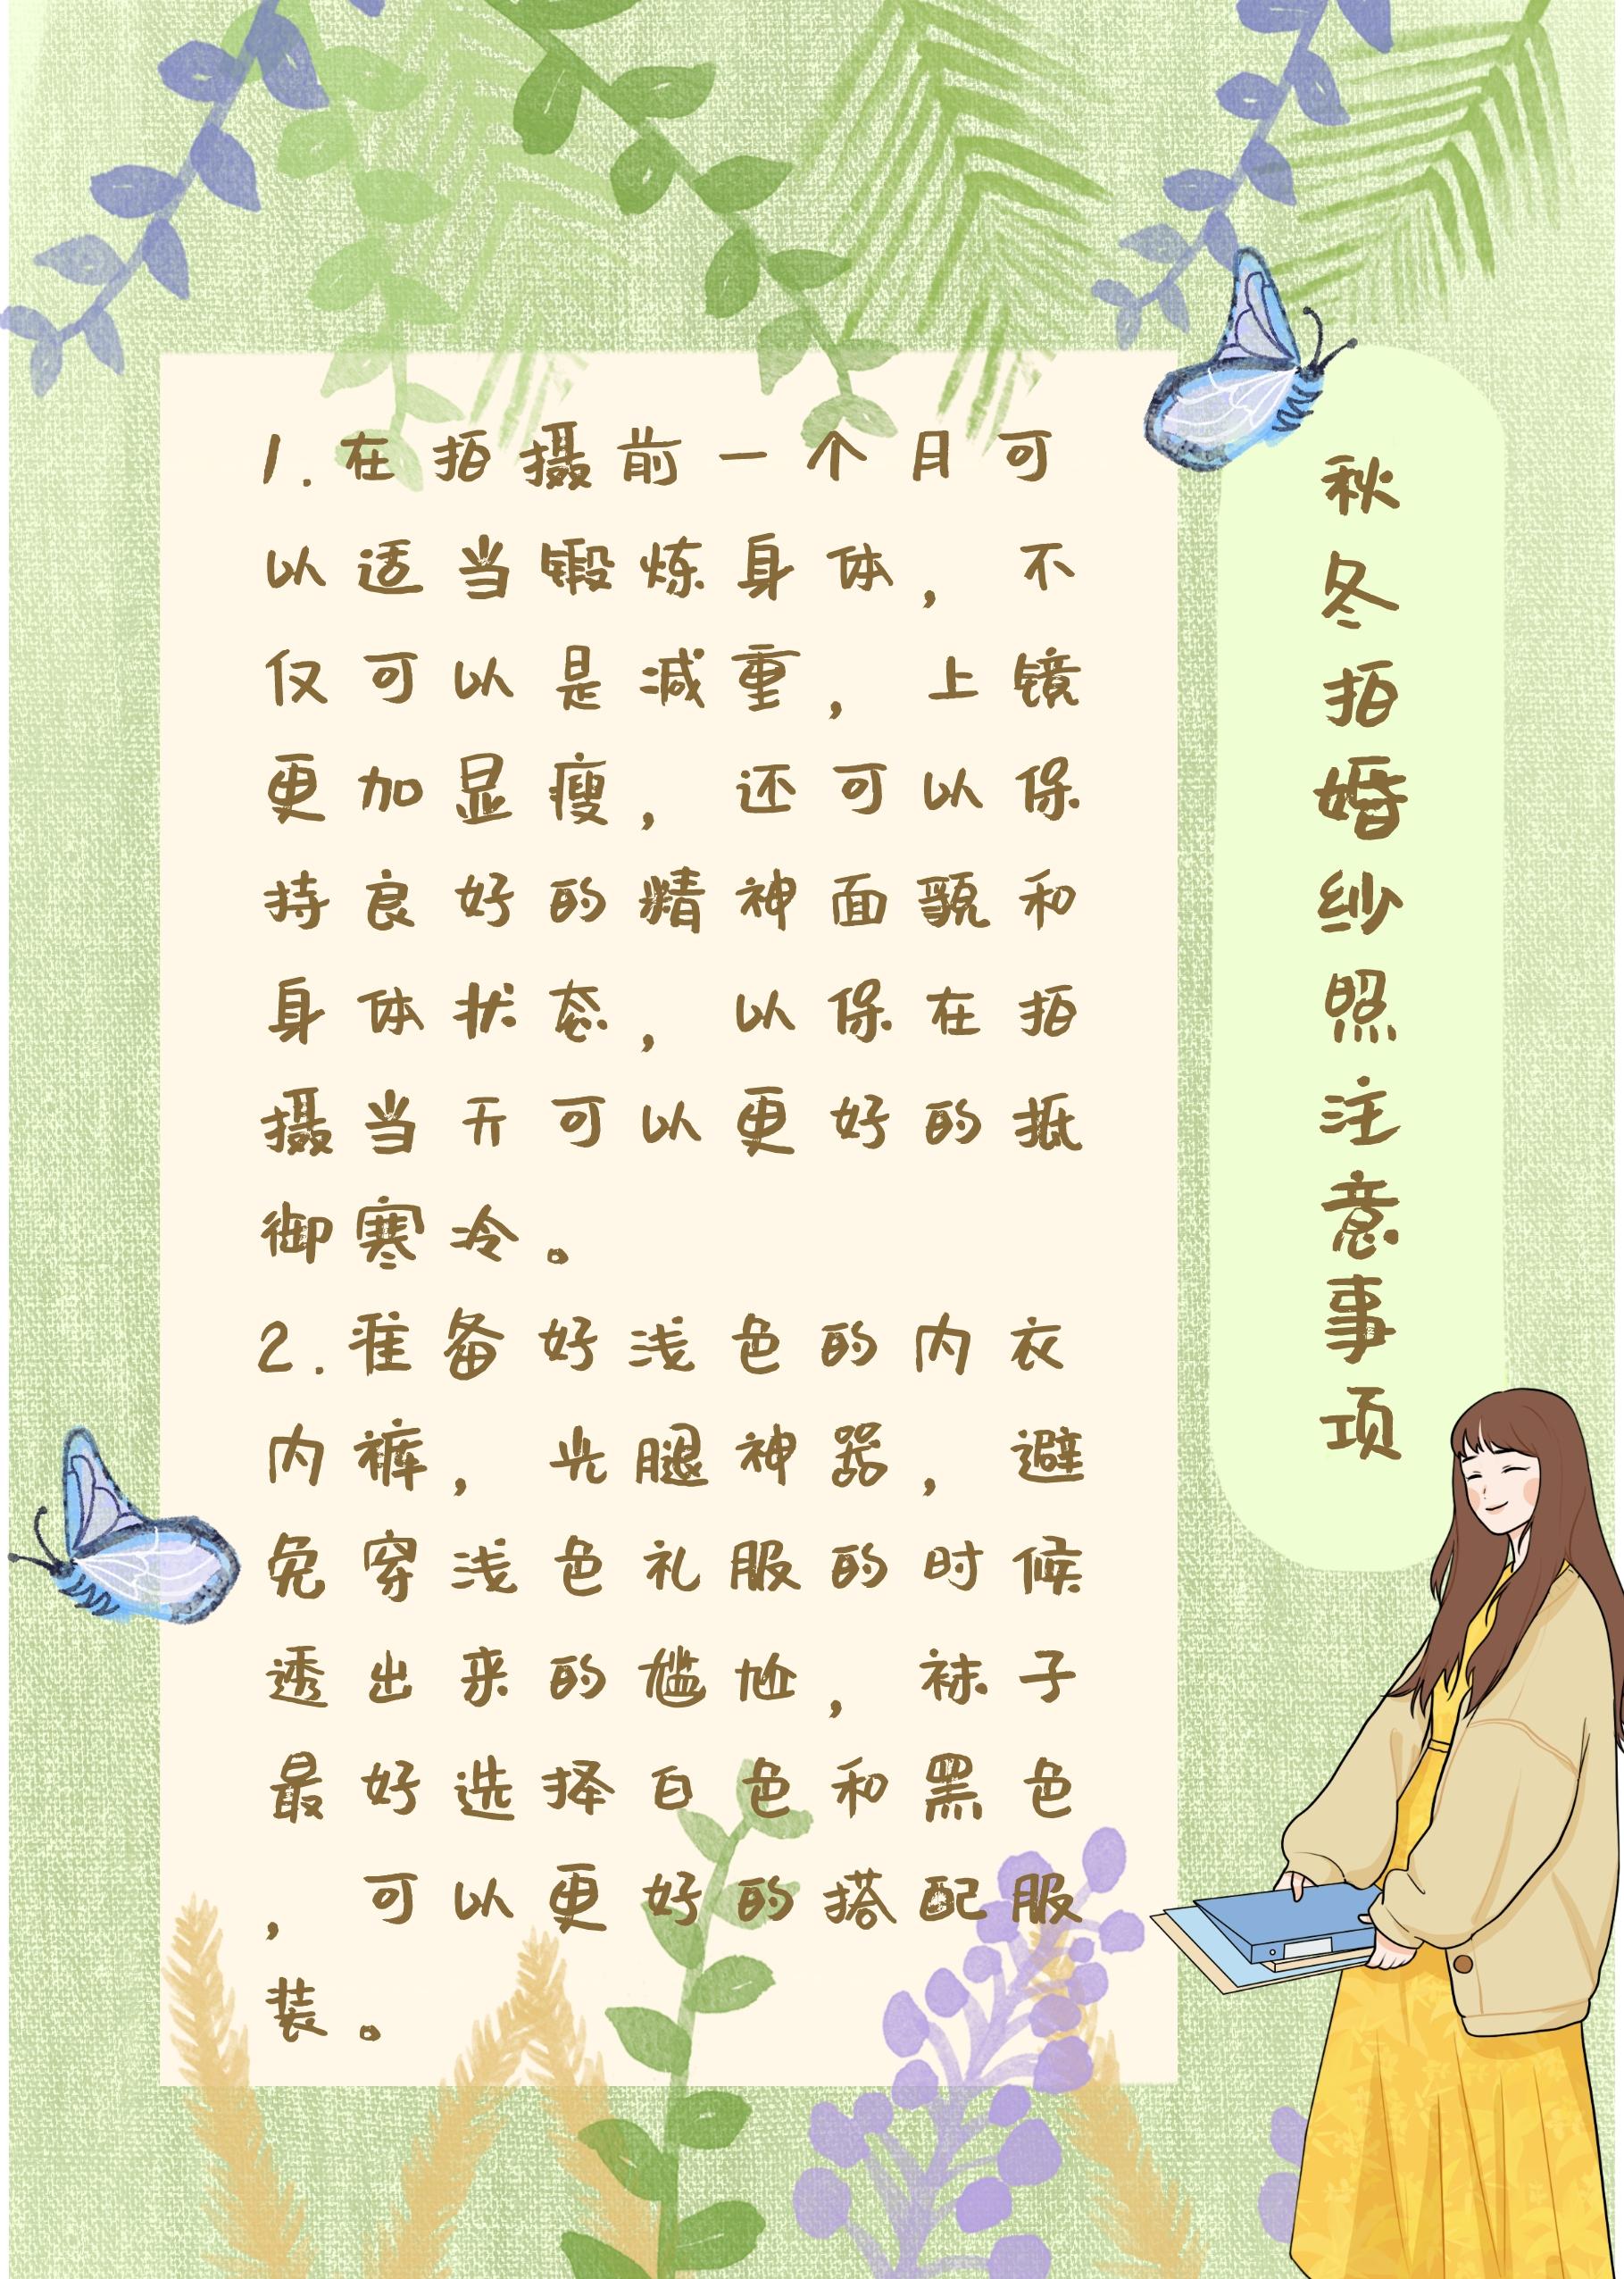 秋冬拍婚纱照注意事项
1.在拍摄前一个月可
以适当锻炼身体，不
仅可以是减重，上镜
更加显瘦，还可以保
持良好的精神面貌和
身体状态，以保在拍
摄当天可以更好的抵
御寒冷。
2.准备好浅色的内衣
内裤，光腿神器，避
免穿浅色礼服的时候
透出来的尴尬，袜子
最好选择白色和黑色
，可以更好的搭配服
装。